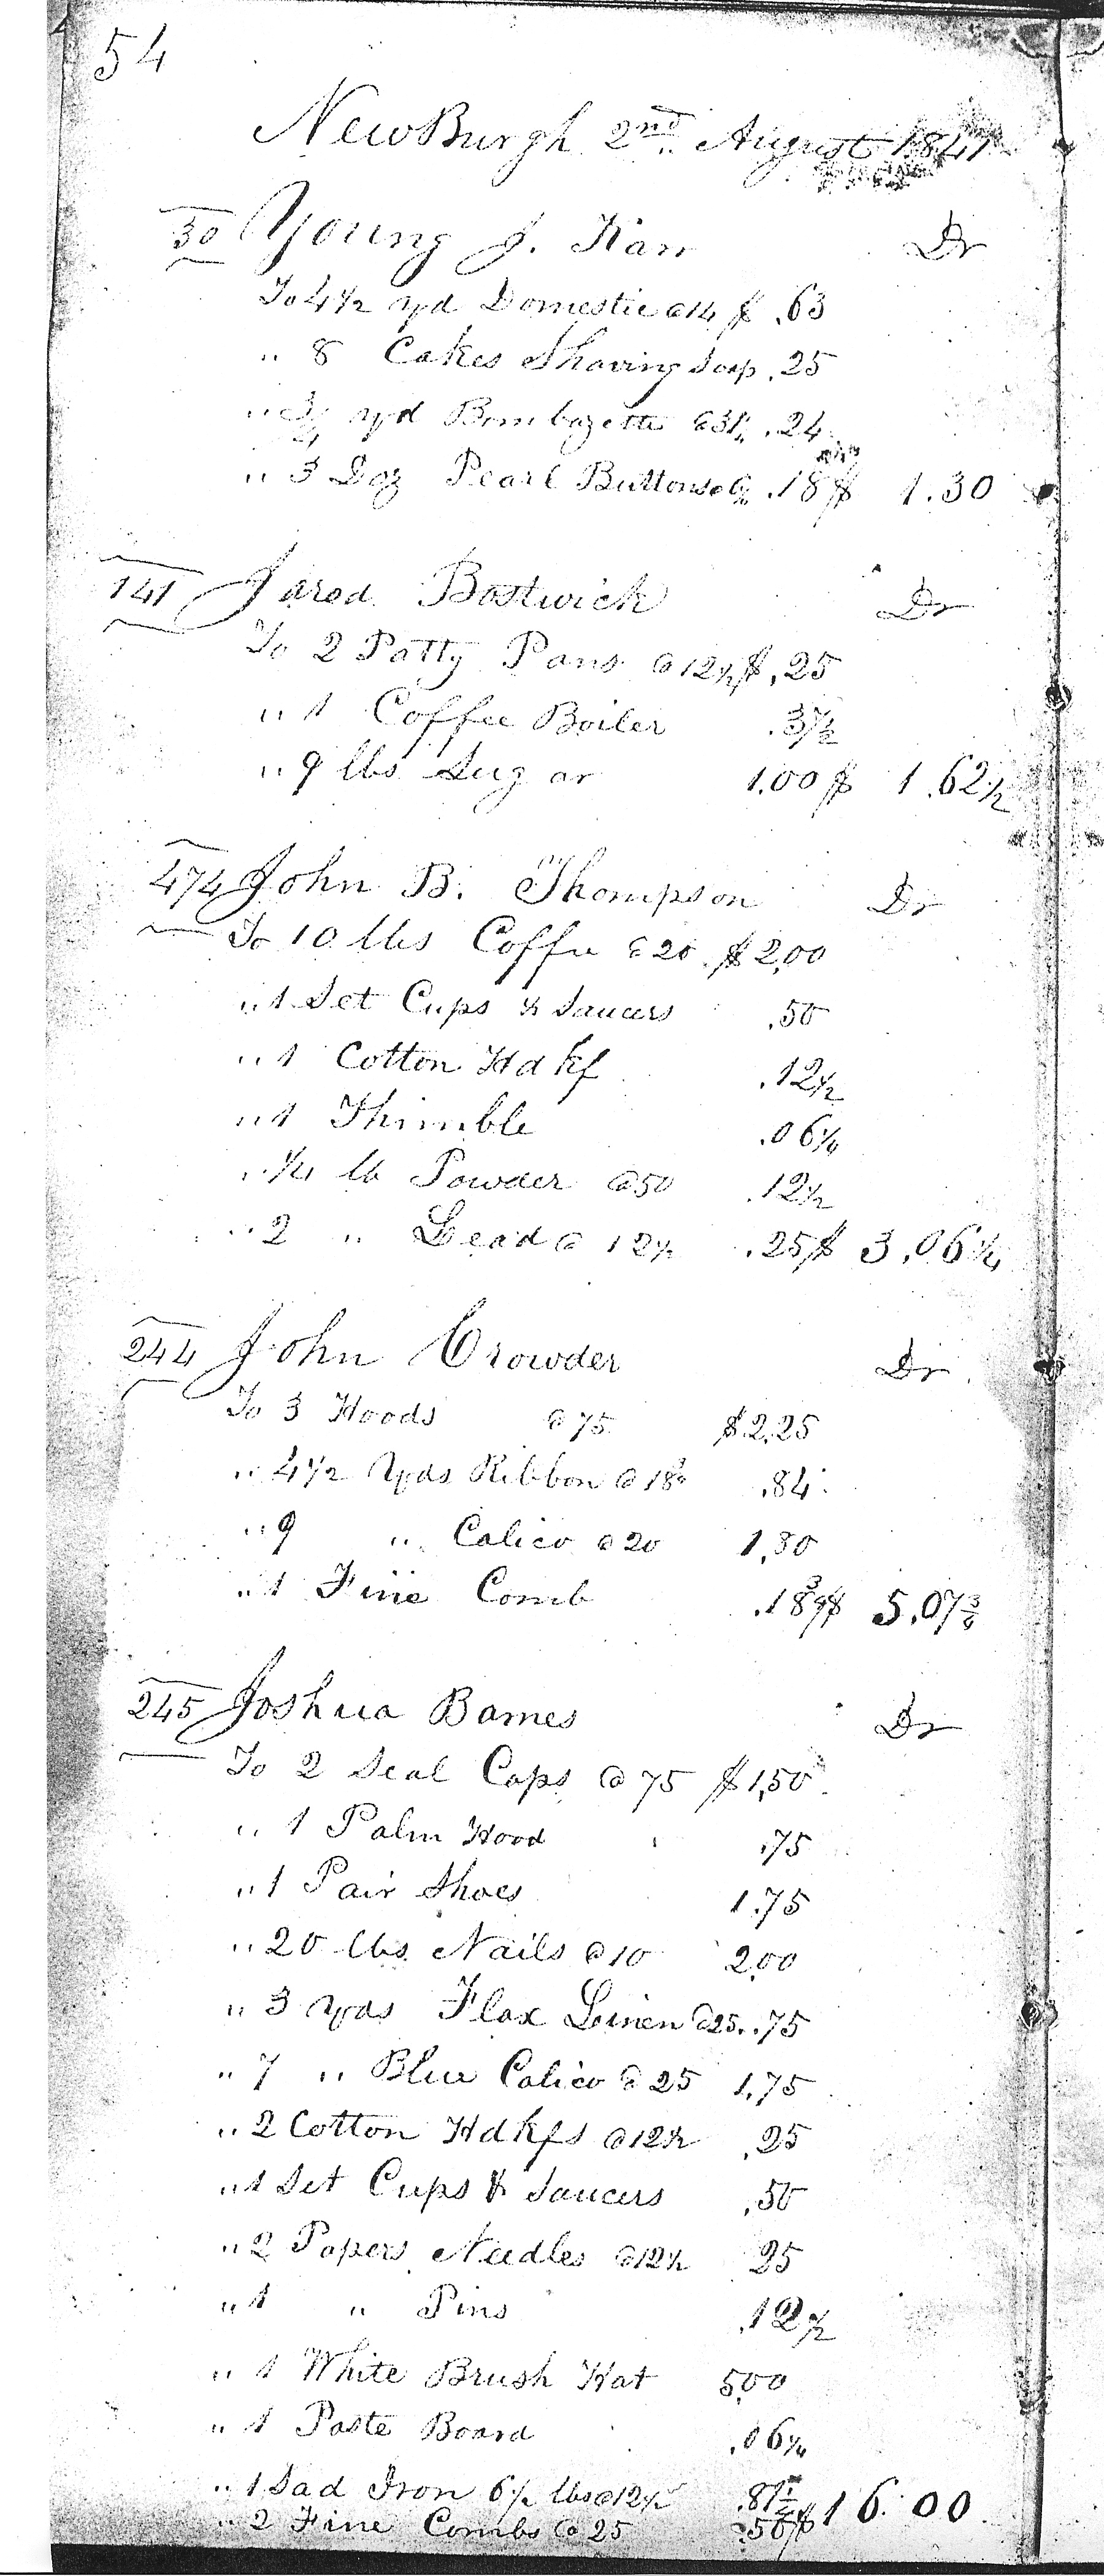 54
NewBurgh 2nd August 1841
30 Young J. Karr Dr
To 4 1/2 yd Domestic @ 14 $ .63
" 8 Cakes Shaving Soap .25
" 3/4 yd Bombazette @ 31 1/4 .24
" 3 Doz Pearl Buttons @ 6 1/4 .18 $ 1.30
141 Jared Bostwick Dr
To 2 Patty Pans @ 12 1/2 $ .25
" 1 Coffee Boiler .37 1/2
" 9 lbs Sugar 1.00 $ 1.62 1/2
474 John B. Thompson Dr
To 10 lbs Coffee @ 20 $ 2.00
" 1 Set Cups & Saucers .50
" 1 Cotton Hdkf .12 1/2
" 1 Thimble .06 1/4
" 1/4 lb Powder @ 50 .12 1/2
" 2 " Lead @ 12 1/2 .25 $ 3.06 1/4
244 John Crowder Dr
To 3 Hoods @ 75 $ 2.25
" 4 1/2 Yds Ribbon @ 18 3/4 .84
" 9 " Calico @ 20 1.80
" 1 Fine Comb .18 3/4 $ 5.07 3/4
245 Joshua Barnes Dr
To 2 Seal Caps @ 75 $ 1.50
" 1 Palm Hood .75
" 1 Pair Shoes 1.75
" 20 lbs Nails @ 10 2.00
" 3 Yds Flax Linen @ 25 .75
" 7 " Blue Calico @ 25 1.75
" 2 Cotton Hdkfs @ 12 1/2 .25
" 1 Set Cups & Saucers .50
" 2 Papers Needles @ 12 1/2 25
" 1 " Pins .12 1/2
" 1 White Brush Hat 5.00
" 1 Paste Board .06 1/4
" 1 Sad Iron 6 1/2 lbs @ 12 1/2 .81 1/4
" 2 Fine Combs @ 25 .50 $ 16.00